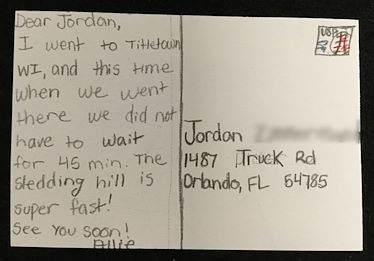 Dear Jordan,
I went to Titletown
WI, and this time
when we went
there we did not
have to wait
for 45 min. The
sledding hill is
super fast!
See you soon!
Allie
USA
Jordan
1487 Truck Rd
Orlando, FL 54785